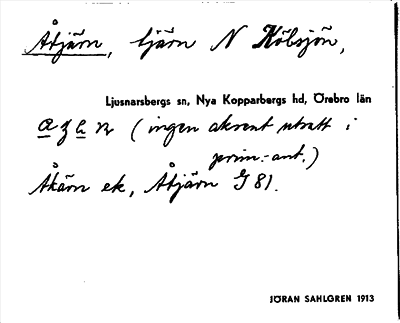 Åtjärn, tjärn N Kölsjön,
Ljusnarsbergs sn, Nya Kopparbergs hd, Örebro län
(ingen akcent utsatt i
prim.-ant.)
Åkärn ek, Åtjärn G 81.
JÖRAN SAHLGREN 1913